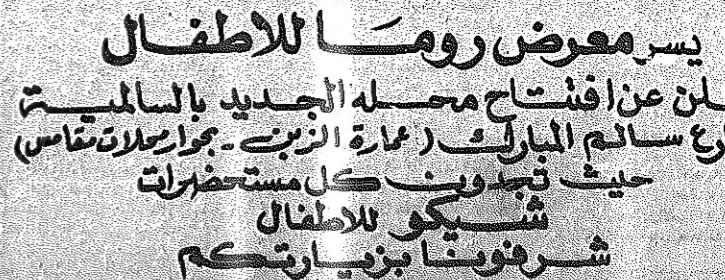 يسر معرض روما للاطفال
ـلن عن افتتاح محله الجديد بالسالمية
ـرع سالم المبارك (عمارة الزبن - بجوار محلات مقامس)
حيث تجدون كل مستحضرات
شيكو للاطفال
شرفونا بزيارتكم